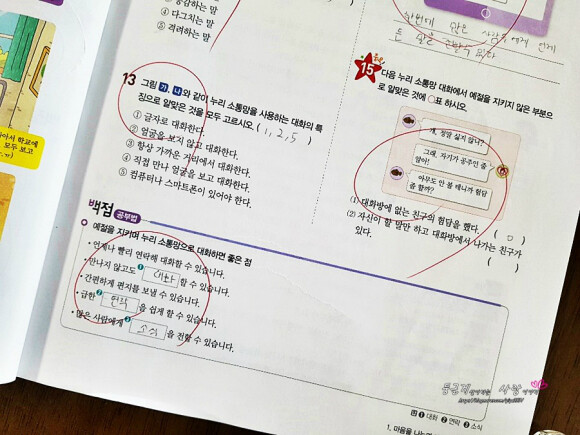 ④ 다그치는 말
⑤ 격려하는 말
13 그림 가, 나와 같이 누리 소통망을 사용하는 대화의 특
징으로 알맞은 것을 모두 고르시오. (1, 2, 5)
① 글자로 대화한다.
② 얼굴을 보지 않고 대화한다.
③ 항상 가까운 자리에서 대화한다.
④ 직접 만나 얼굴을 보고 대화한다.
⑤ 컴퓨터나 스마트폰이 있어야 한다.
백점 공부법
예절을 지키며 누리 소통망으로 대화하면 좋은 점
• 언제나 빨리 연락해 대화할 수 있습니다.
• 만나지 않고도 ❶ 대화 할 수 있습니다.
• 간편하게 편지를 보낼 수 있습니다.
• 급한 ❷ 연락 을 쉽게 할 수 있습니다.
• 많은 사람에게 ❸ 소식 을 전할 수 있습니다.
한번에 많은 사람들에게
15 다음 누리 소통망 대화에서 예절을 지키지 않은 부분으
로 알맞은 것에 ○표 하시오.
걔, 정말 싫지 않니?
그래, 자기가 공주인 줄
알아!
아무도 안 볼 테니까 험담
좀 할까?
(1) 대화방에 없는 친구의 험담을 했다. ( ○ )
(2) 자신이 할 말만 하고 대화방에서 나가는 친구가
있다. ( )
❶ 대화 ❷ 연락 ❸ 소식
1. 마음을 나누는